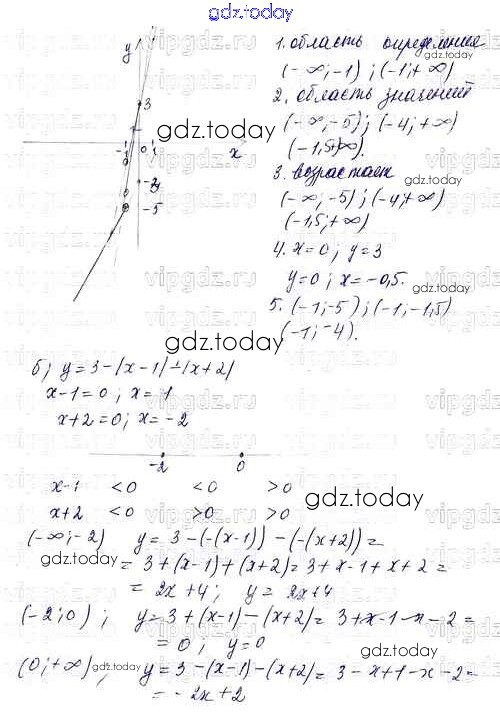 gdz.today
y
3
-1
0
1
x
-2
-5
1. область определения
(-∞; -1) ; (-1; +∞)
2. область значений
(-∞; -5) ; (-4; +∞)
(-1,5+∞).
3. возрастает
(-∞; -5) ; (-4+∞)
(-1,5; +∞)
4. x=0 ; y=3
y=0 ; x=-0,5.
5. (-1; -5) ; (-1; -1,5)
(-1; -4).
gdz.today
gdz.today
gdz.today
gdz.today
б; y = 3-|x-1|-|x+2|
x-1=0 ; x=1
x+2=0; x=-2
-2 0
x-1 <0 <0 >0
x+2 <0 >0 >0
gdz.today
(-∞; -2) y = 3-(-(x-1))-(-(x+2))=
gdz.today
= 3+(x-1)+(x+2)=3+x-1+x+2=
= 2x+4; y=2x+4
(-2; 0) ; y=3+(x-1)-(x+2)= 3+x-1-x-2=
= 0; y=0
(0; +∞), y=3-(x-1)-(x+2)= 3-x+1-x-2=
gdz.today
gdz.today
= -2x+2